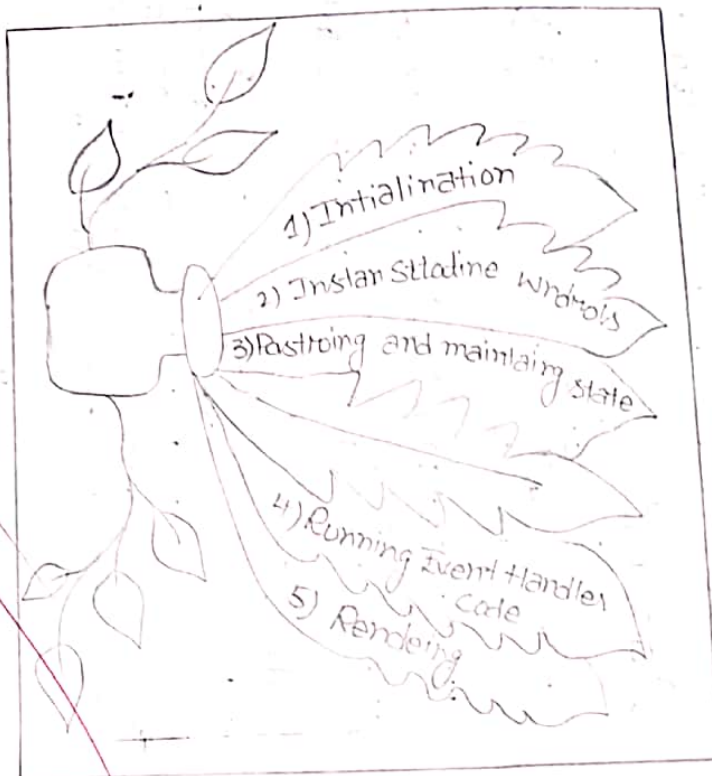 1) Intialination
2) Instan Sttadine wndrols
3) Pastroing and maintaing state
4) Running Event Handler
code
5) Rendeing